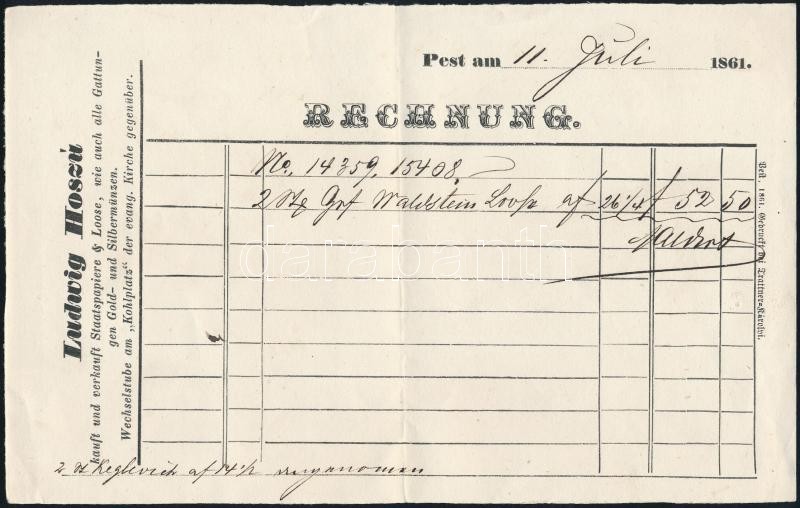 Pest am 11. Juli 1861.
RECHNUNG.
Ludwig Hoszú
kauft und verkauft Staatspapiere & Loose, wie auch alle Gattun-
gen Gold- und Silbermünzen.
Wechselstube am „Kohlplatz“ der evang. Kirche gegenüber.
No. 14359, 15408,
2 Stg Grf Waldstein Loose af 26 1/4 f 52 50
Pest. 1861. Gedruckt bei Trattner-Károlyi.
2 st Keglevich af 14 1/2 angenomen
darabanth